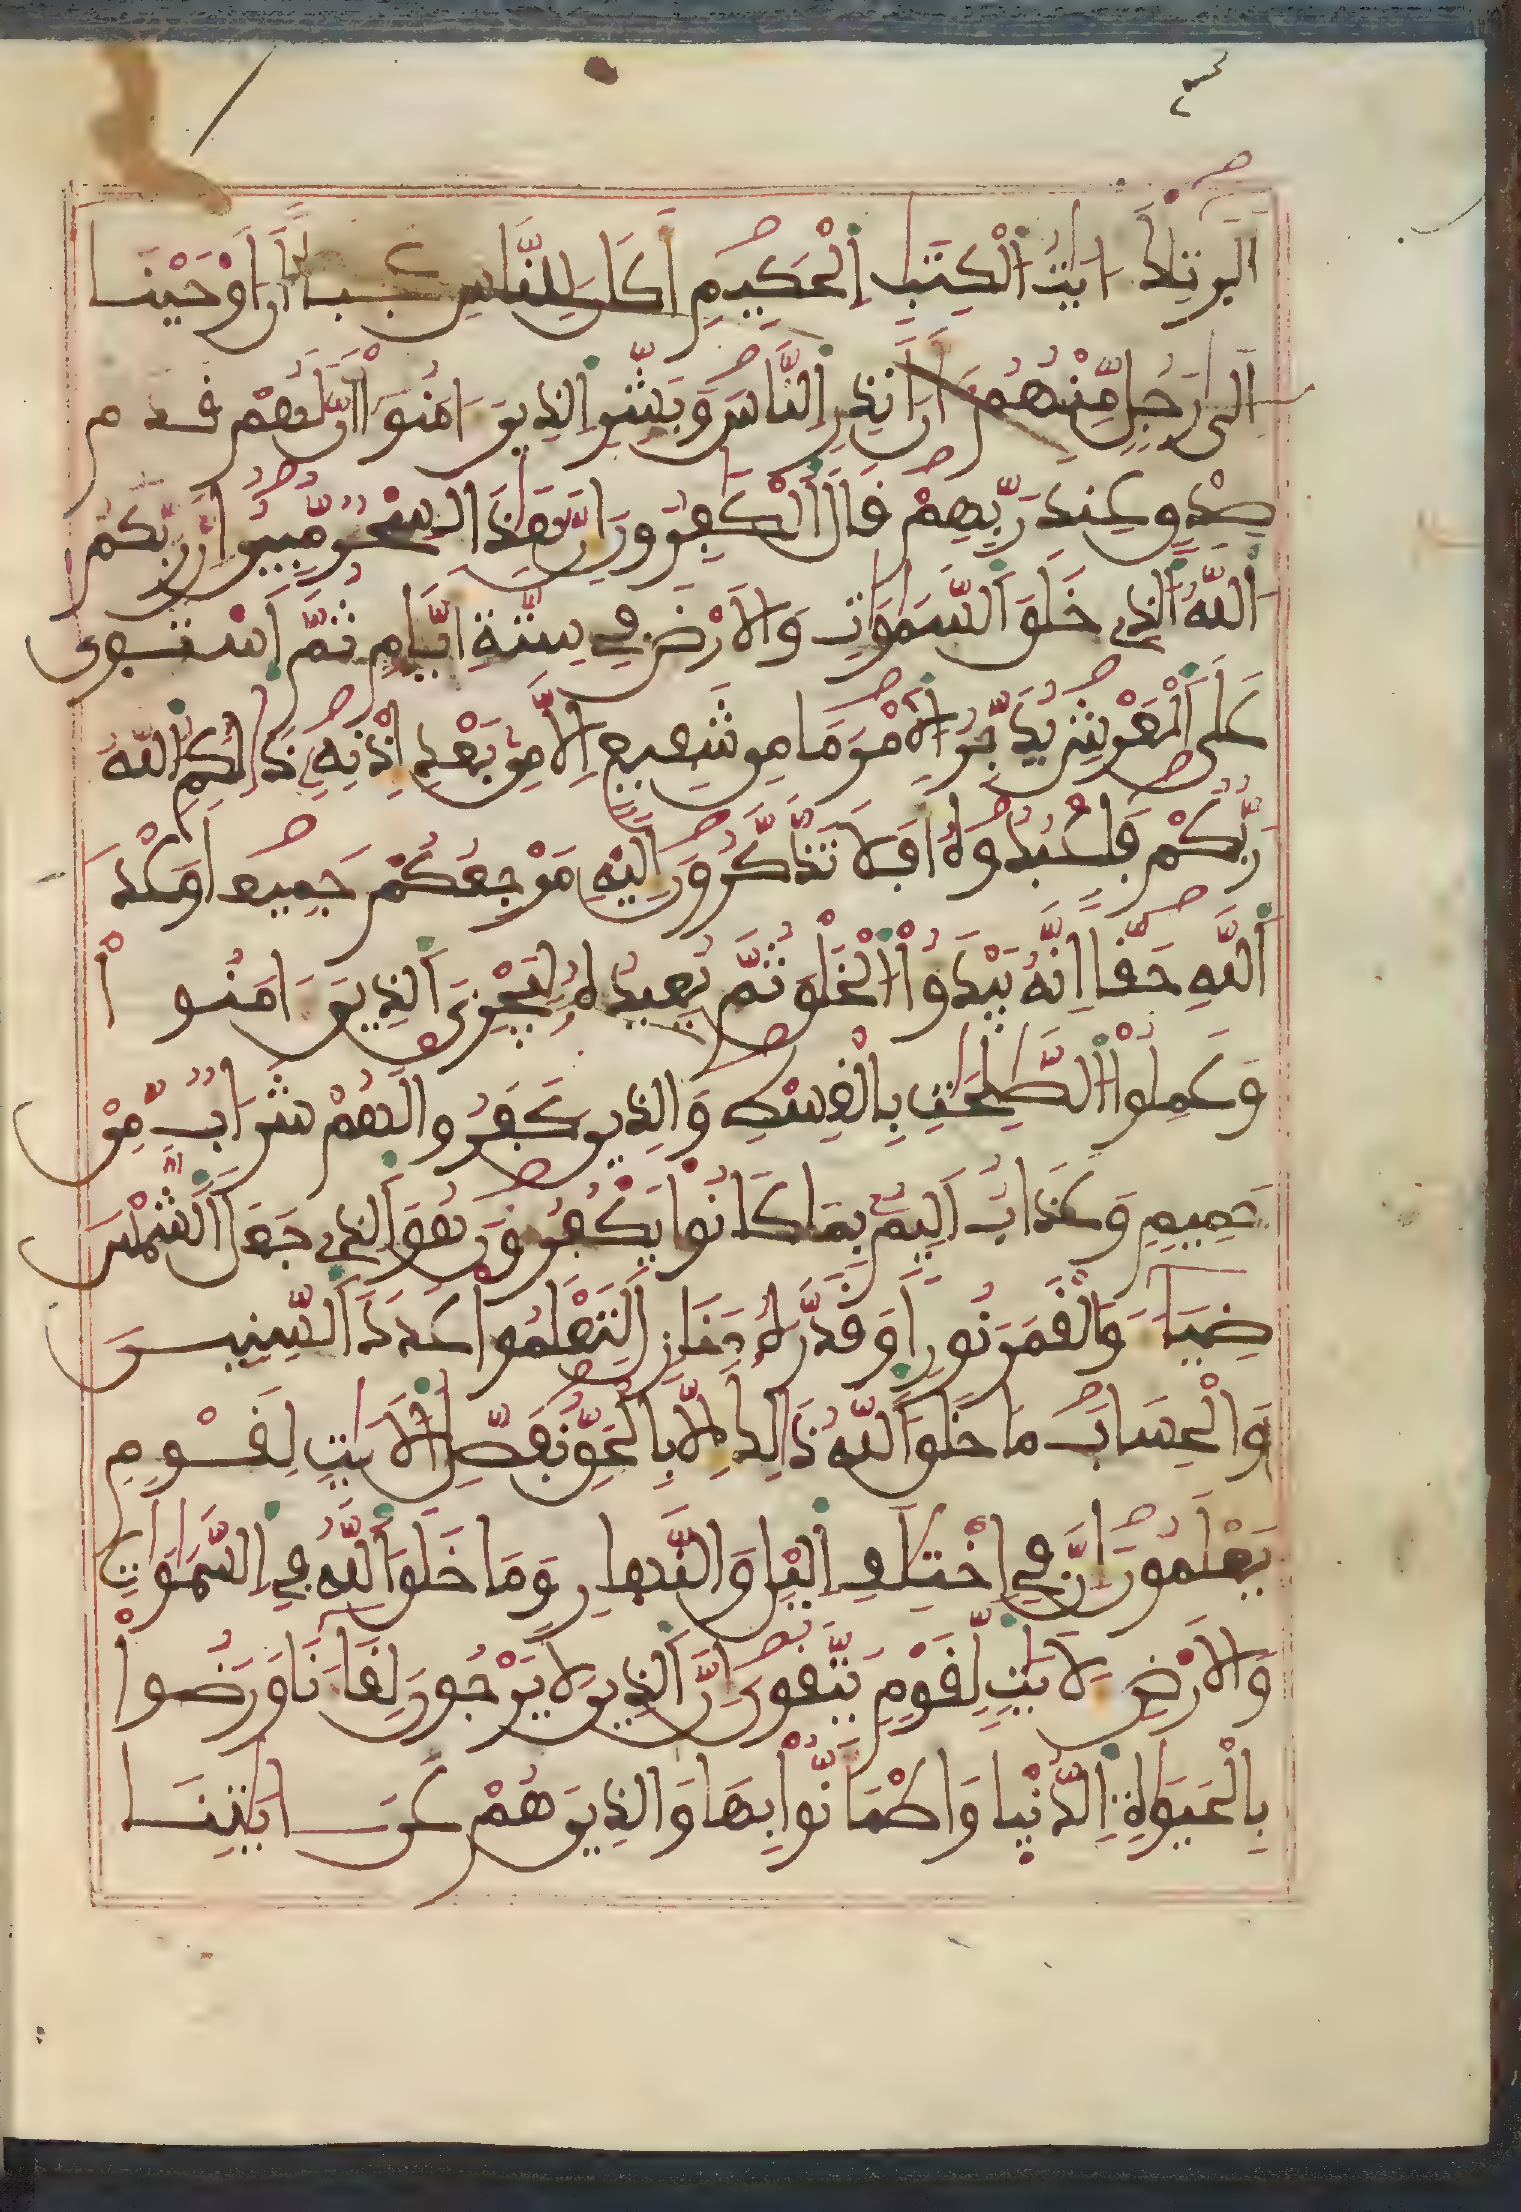 الٓر تِلْكَ ءَايَٰتُ اَ۬لْكِتَٰبِ اِ۬لْحَكِيمِ أَكَانَ لِلنَّاسِ عَجَباً اَنَ اَوْحَيْنَا
إِلَىٰ رَجُلٍ مِّنْهُمُۥ أَنَ اَنذِرِ اِ۬لنَّاسَ وَبَشِّرِ اِ۬لذِينَ ءَامَنُوٓاْ أَنَّ لَهُمْ قَدَمَ
صِدْقٍ عِندَ رَبِّهِمْ قَالَ اَ۬لْكَٰفِرُونَ إِنَّ هَٰذَا لَسِحْرٌ مُّبِينٌ إِنَّ رَبَّكُمُ
اُ۬للَّهُ اُ۬لذِے خَلَقَ اَ۬لسَّمَٰوَٰتِ وَالَارْضَ فِے سِتَّةِ أَيَّامٍ ثُمَّ اَ۪سْتَوَىٰ
عَلَى اَ۬لْعَرْشِ يُدَبِّرُ اُ۬لَامْرَ مَا مِن شَفِيعٍ اِلَّا مِنۢ بَعْدِ إِذْنِهِۦ ذَٰلِكُمُ اُ۬للَّهُ
رَبُّكُمْ فَاعْبُدُوهُ أَفَلَا تَذَّكَّرُونَ إِلَيْهِ مَرْجِعُكُمْ جَمِيعاً وَعْدَ
اَ۬للَّهِ حَقّاً اِنَّهُۥ يَبْدَؤُاْ اُ۬لْخَلْقَ ثُمَّ يُعِيدُهُۥ لِيَجْزِيَ اَ۬لذِينَ ءَامَنُواْ
وَعَمِلُواْ اُ۬لصَّٰلِحَٰتِ بِالْقِسْطِ وَالذِينَ كَفَرُواْ لَهُمْ شَرَابٌ مِّنْ
حَمِيمٍ وَعَذَابٌ اَلِيمٌۢ بِمَا كَانُواْ يَكْفُرُونَ هُوَ اَ۬لذِے جَعَلَ اَ۬لشَّمْسَ
ضِيَآءً وَالْقَمَرَ نُوراً وَقَدَّرَهُۥ مَنَازِلَ لِتَعْلَمُواْ عَدَدَ اَ۬لسِّنِينَ
وَالْحِسَابَ مَا خَلَقَ اَ۬للَّهُ ذَٰلِكَ إِلَّا بِالْحَقِّ نُفَصِّلُ اُ۬لَايَٰتِ لِقَوْمٍ
يَعْلَمُونَ إِنَّ فِے اِ۪خْتِلَٰفِ اِ۬ليْلِ وَالنَّهَارِ وَمَا خَلَقَ اَ۬للَّهُ فِے اِ۬لسَّمَٰوَٰتِ
وَالَارْضِ لَأٓيَٰتٍ لِّقَوْمٍ يَتَّقُونَ إِنَّ اَ۬لذِينَ لَا يَرْجُونَ لِقَآءَنَا وَرَضُواْ
بِالْحَيَوٰةِ اِ۬لدُّنْيَا وَاطْمَأَنُّواْ بِهَا وَالذِينَ هُمْ عَنَ ءَايَٰتِنَا